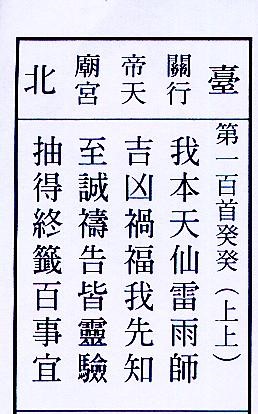 臺北
關帝廟
行天宮
第一百首癸癸（上上）
我本天仙雷雨師
吉凶禍福我先知
至誠禱告皆靈驗
抽得終籤百事宜